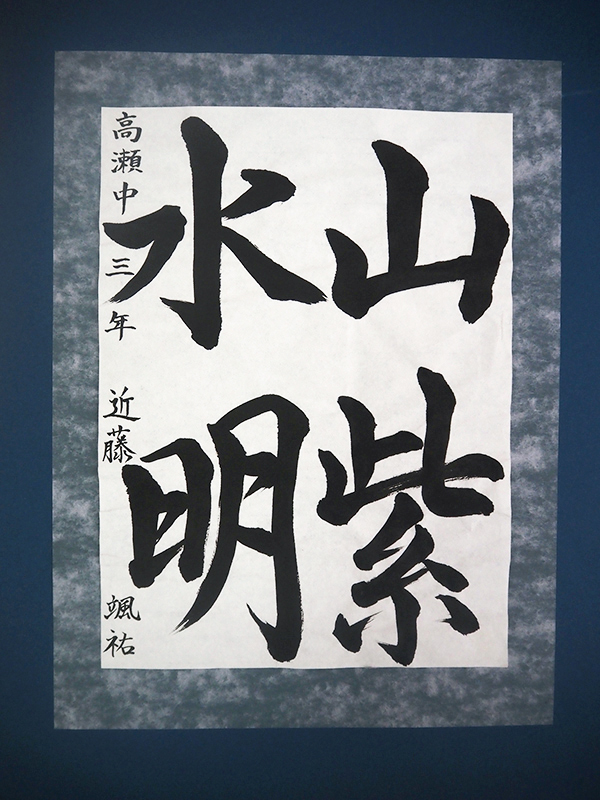 山紫
水明
高瀬中 三年 近藤 颯祐